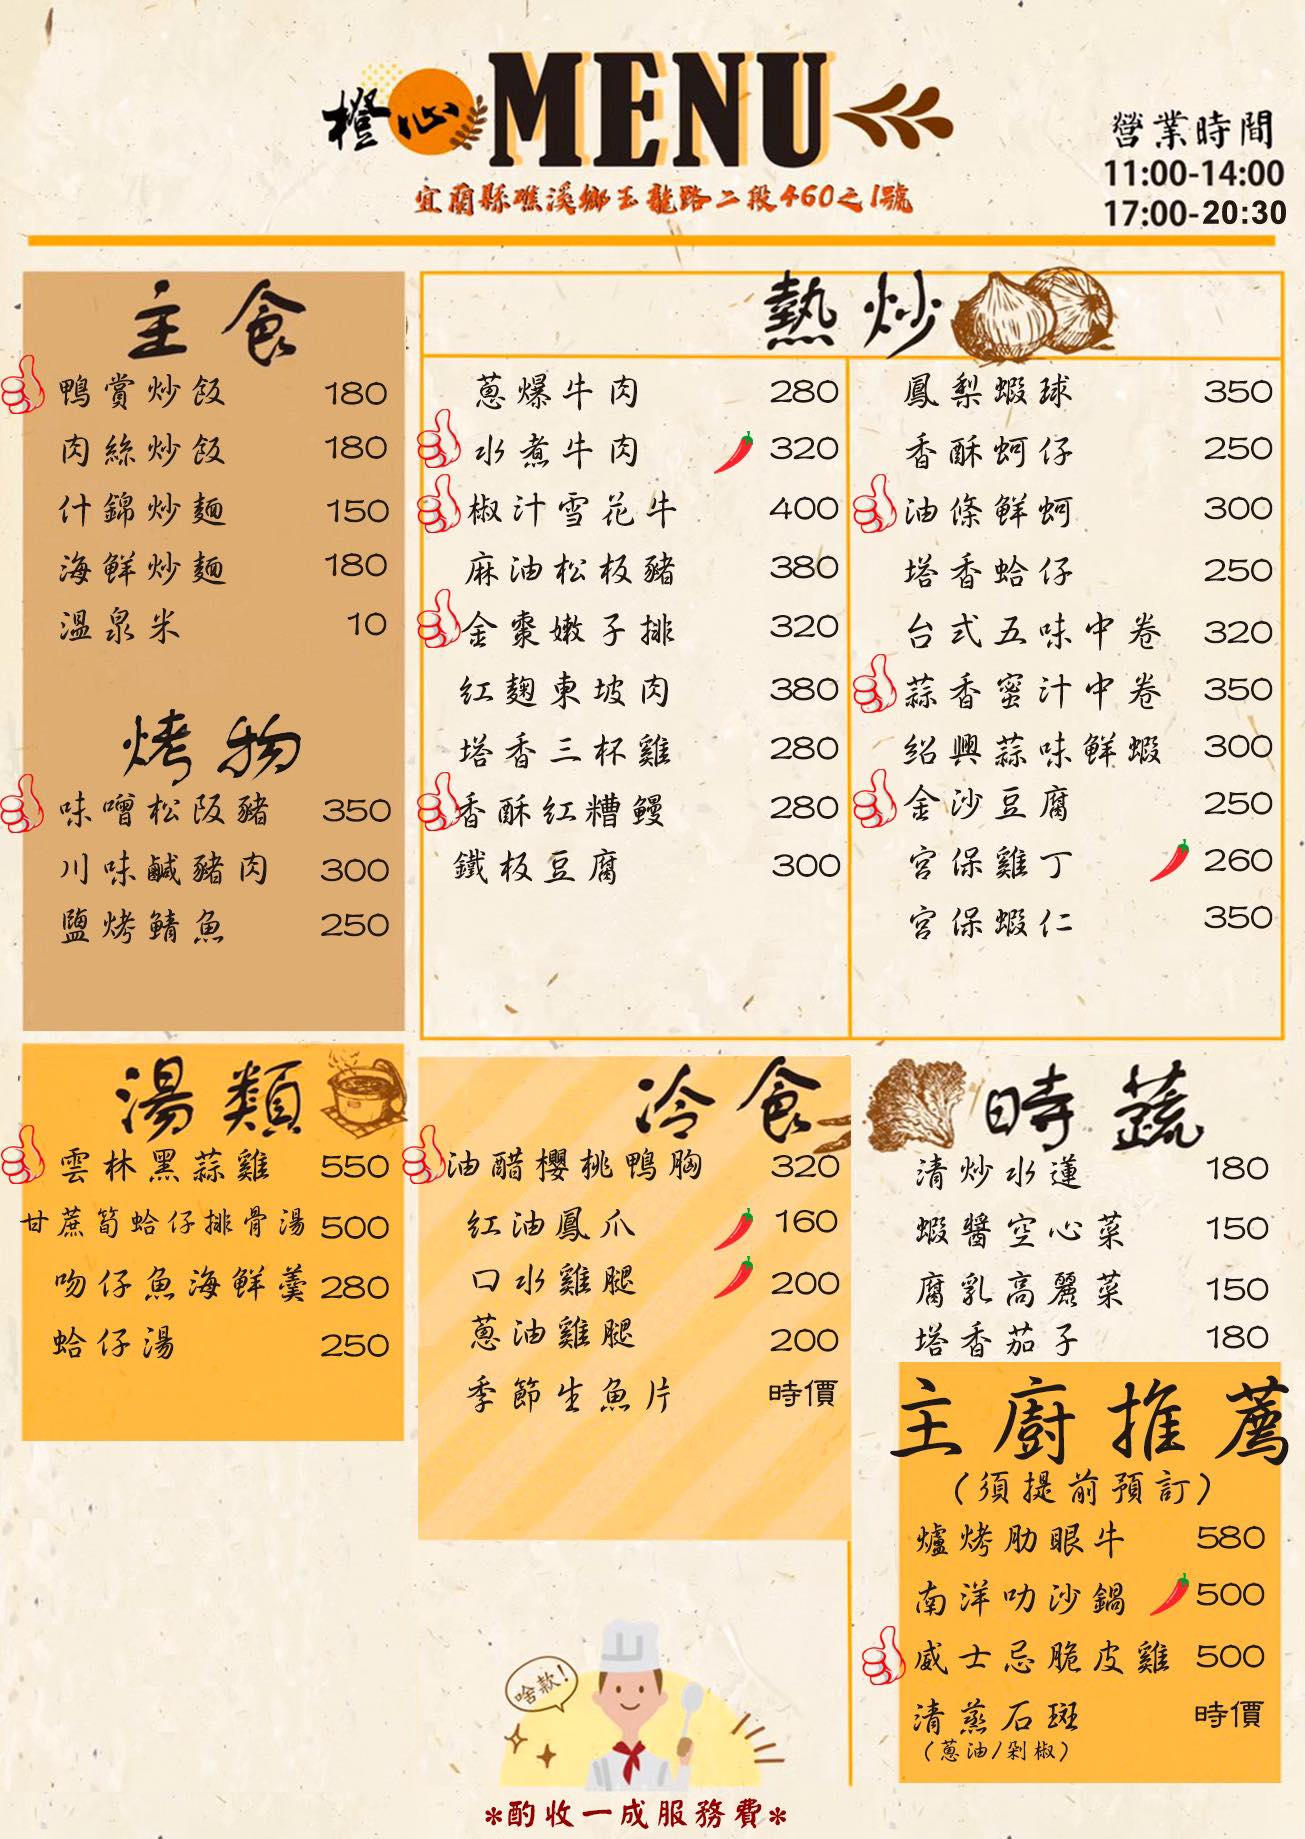 橙心MENU
宜蘭縣礁溪鄉玉龍路二段460之1號
營業時間
11:00-14:00
17:00-20:30
主食
鴨賞炒飯 180
肉絲炒飯 180
什錦炒麵 150
海鮮炒麵 180
溫泉米 10
烤物
味噌松阪豬 350
川味鹹豬肉 300
鹽烤鯖魚 250
熱炒
蔥爆牛肉 280
水煮牛肉 320
椒汁雪花牛 400
麻油松板豬 380
金棗嫩子排 320
紅麴東坡肉 380
塔香三杯雞 280
香酥紅糟鰻 280
鐵板豆腐 300
鳳梨蝦球 350
香酥蚵仔 250
油條鮮蚵 300
塔香蛤仔 250
台式五味中卷 320
蒜香蜜汁中卷 350
紹興蒜味鮮蝦 300
金沙豆腐 250
宮保雞丁 260
宮保蝦仁 350
湯類
雲林黑蒜雞 550
甘蔗筍蛤仔排骨湯 500
吻仔魚海鮮羹 280
蛤仔湯 250
冷食
油醋櫻桃鴨胸 320
紅油鳳爪 160
口水雞腿 200
蔥油雞腿 200
季節生魚片 時價
時蔬
清炒水蓮 180
蝦醬空心菜 150
腐乳高麗菜 150
塔香茄子 180
主廚推薦
(須提前預訂)
爐烤肋眼牛 580
南洋叻沙鍋 500
威士忌脆皮雞 500
清蒸石斑 時價
(蔥油/剁椒)
啥款!
*酌收一成服務費*